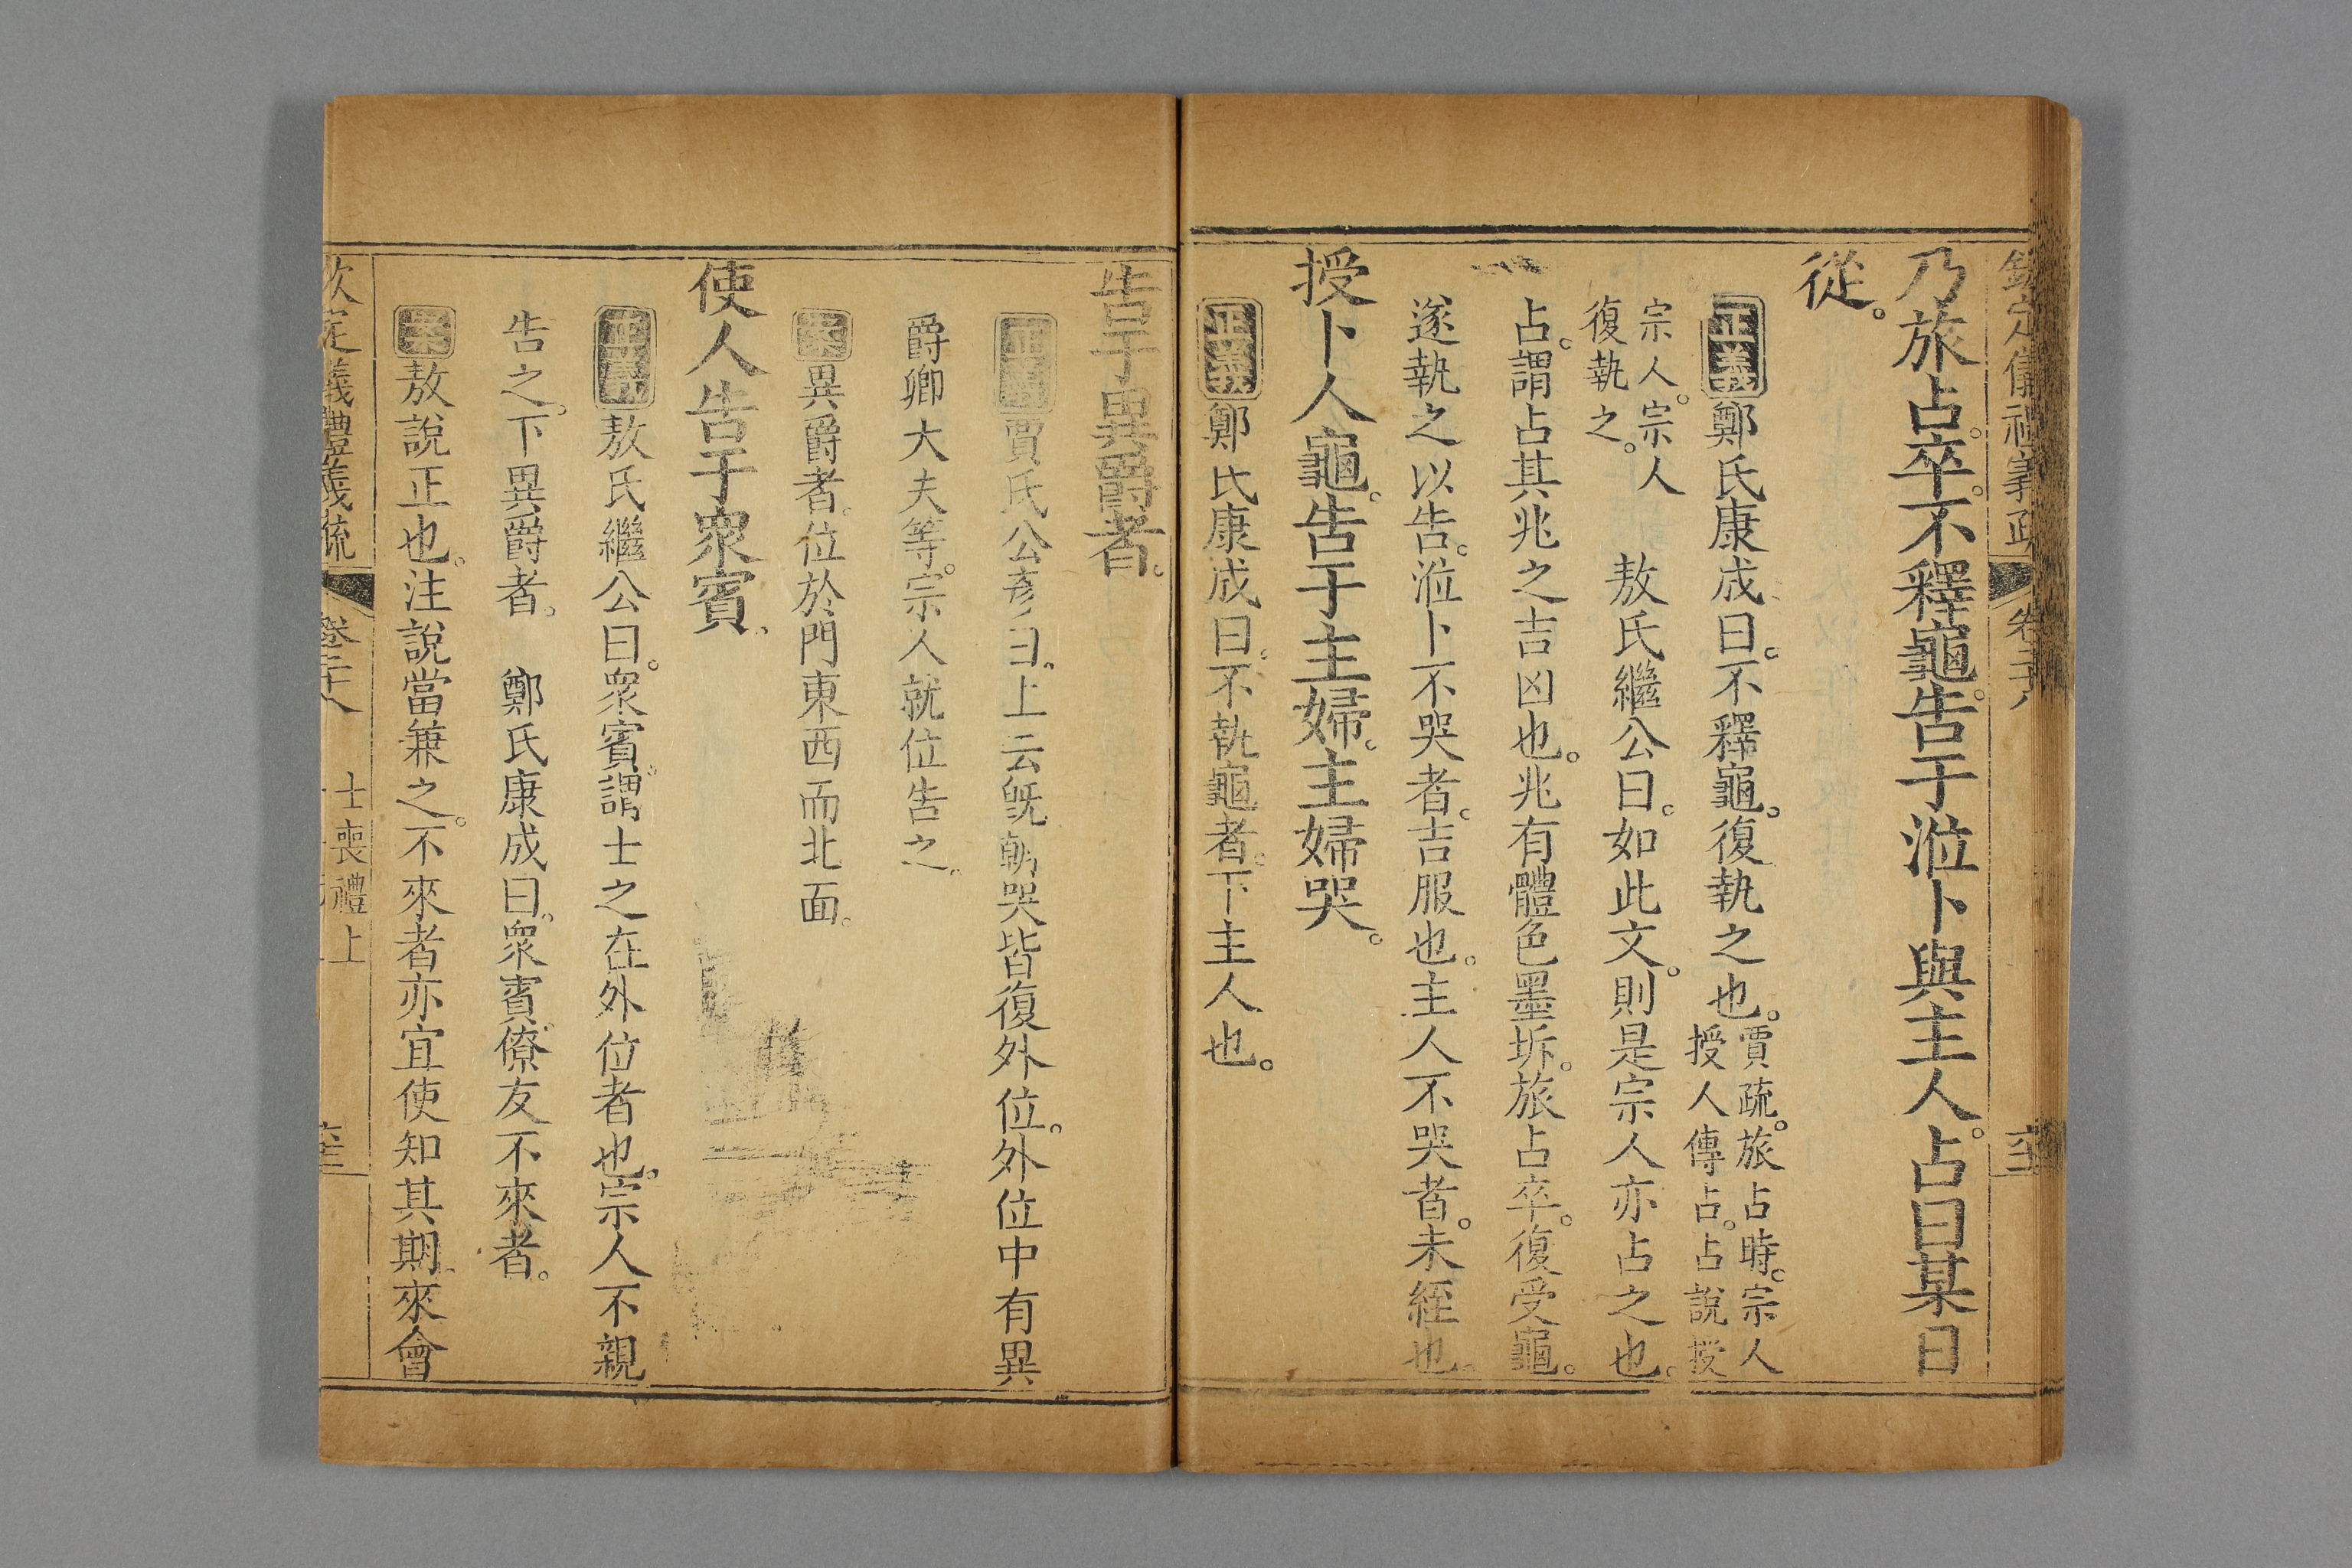 乃旅占。卒。不釋龜。告于涖卜與主人。占曰某日
從。
正義鄭氏康成曰。不釋龜。復執之也。賈疏。旅占時。宗人
授人傳占。占說授
宗人。宗人
復執之。
敖氏繼公曰。如此文。則是宗人亦占之也。
占。謂占其兆之吉凶也。兆有體色墨坼。旅占卒。復受龜。
遂執之以告。涖卜不哭者。吉服也。主人不哭者。未絰也。
授卜人龜。告于主婦。主婦哭。
正義鄭氏康成曰。不執龜者。下主人也。
告于異爵者。
正義賈氏公彥曰。上云旣朝哭皆復外位。外位中有異
爵卿大夫等。宗人就位告之。
案異爵者。位於門東西而北面。
使人告于眾賓。
正義敖氏繼公曰。眾賓。謂士之在外位者也。宗人不親
告之。下異爵者。 鄭氏康成曰。眾賓。僚友不來者。
案敖說正也。注說當兼之。不來者亦宜使知其期。來會
欽定儀禮義疏 卷二十八 士喪禮上